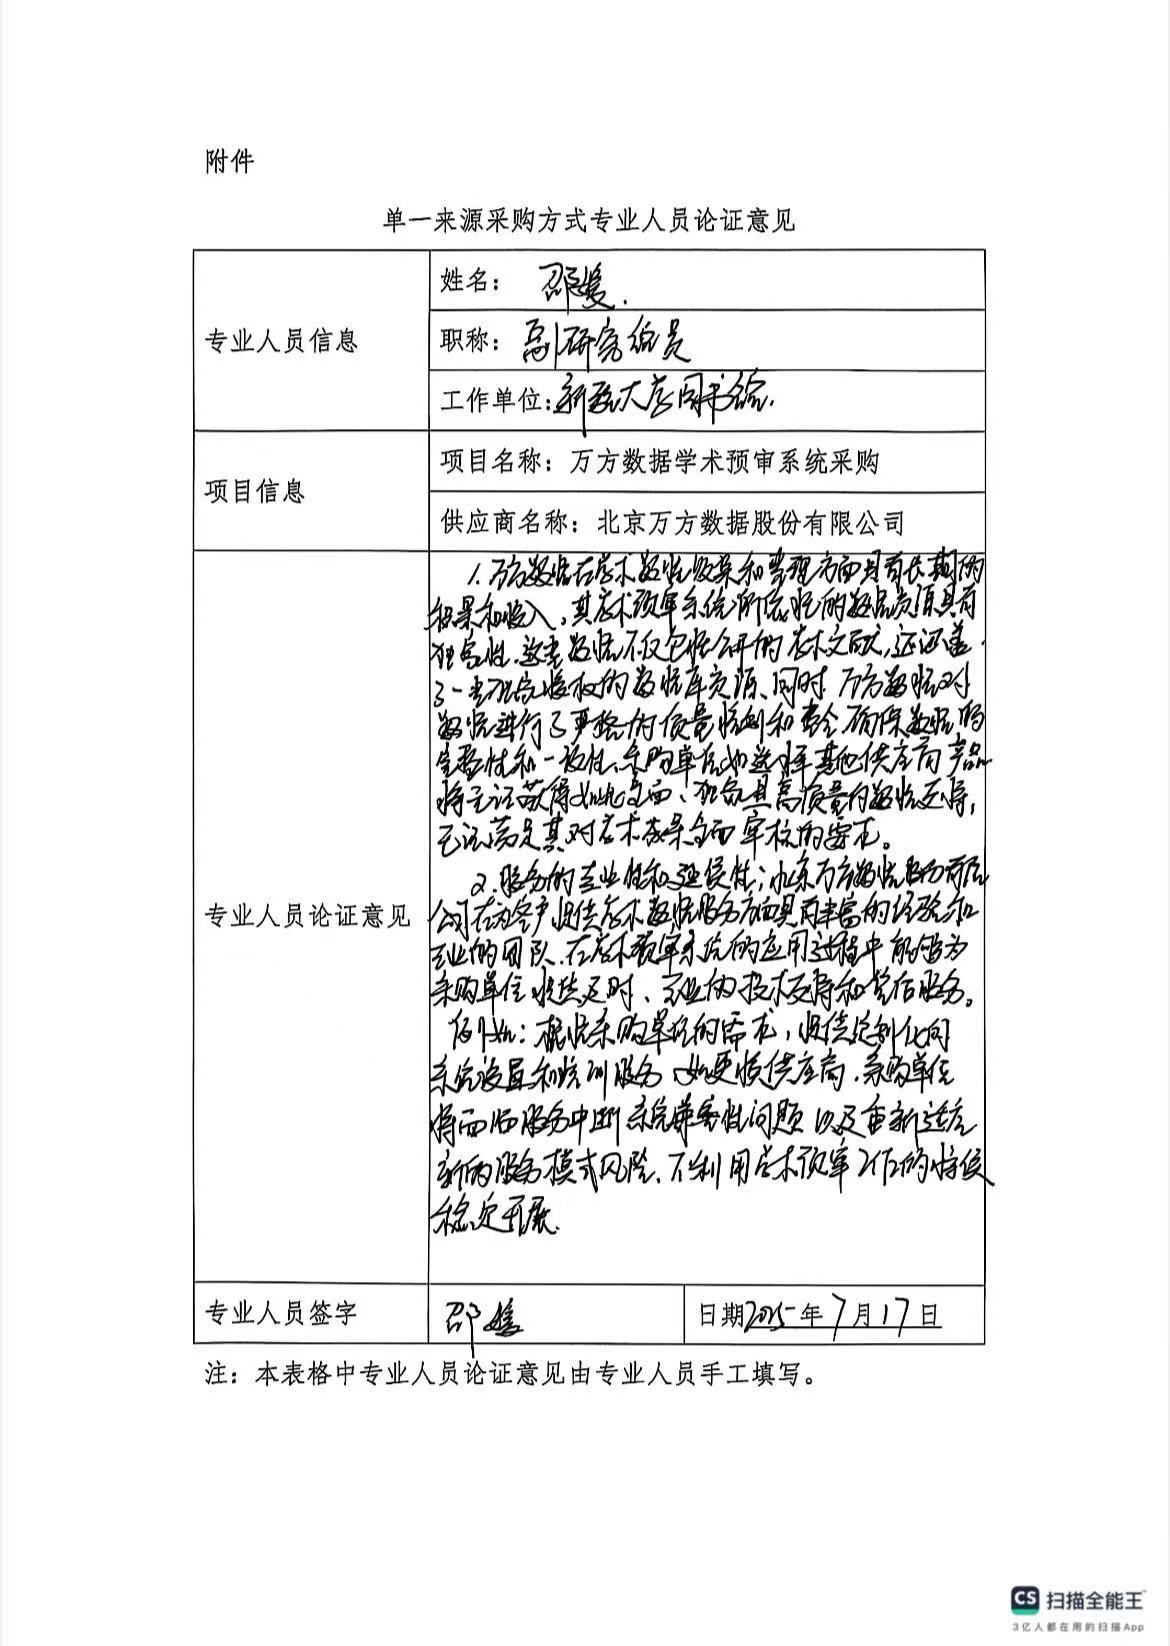 附件
单一来源采购方式专业人员论证意见
专业人员信息
姓名：邵媛.
职称：副研究馆员
工作单位:新疆大学图书馆.
项目信息
项目名称：万方数据学术预审系统采购
供应商名称：北京万方数据股份有限公司
专业人员论证意见
1. 万方数据在学术数据收集和整理方面具有长期的
积累和投入，其学术预审系统所依托的数据资源具有
独家性.这些数据不仅包括公开的学术文献，还涵盖
了一些独家授权的数据库资源、同时万方数据对
数据进行了严格的质量控制和整合.确保数据的
完整性和一致性.采购单位如选择其他供应商产品
将无法获得如此全面、独家且高质量的数据支撑，
无法满足其对学术成果全面审核的需求。
2. 服务的专业性和延续性；北京万方数据股份有限
公司在为客户提供学术数据服务方面具有丰富的经验和
专业的团队.在学术预审系统的应用过程中能够为
采购单位提供及时、专业的技术支持和售后服务。
例如：根据采购单位的需求，提供定制化的
系统设置和培训服务.如更换供应商.采购单位
将面临服务中断系统兼容性问题以及重新适应
新的服务模式风险.不利用学术预审工作的持续
稳定开展.
专业人员签字
邵媛
日期2025年7月17日
注：本表格中专业人员论证意见由专业人员手工填写。
CS 扫描全能王
3亿人都在用的扫描App